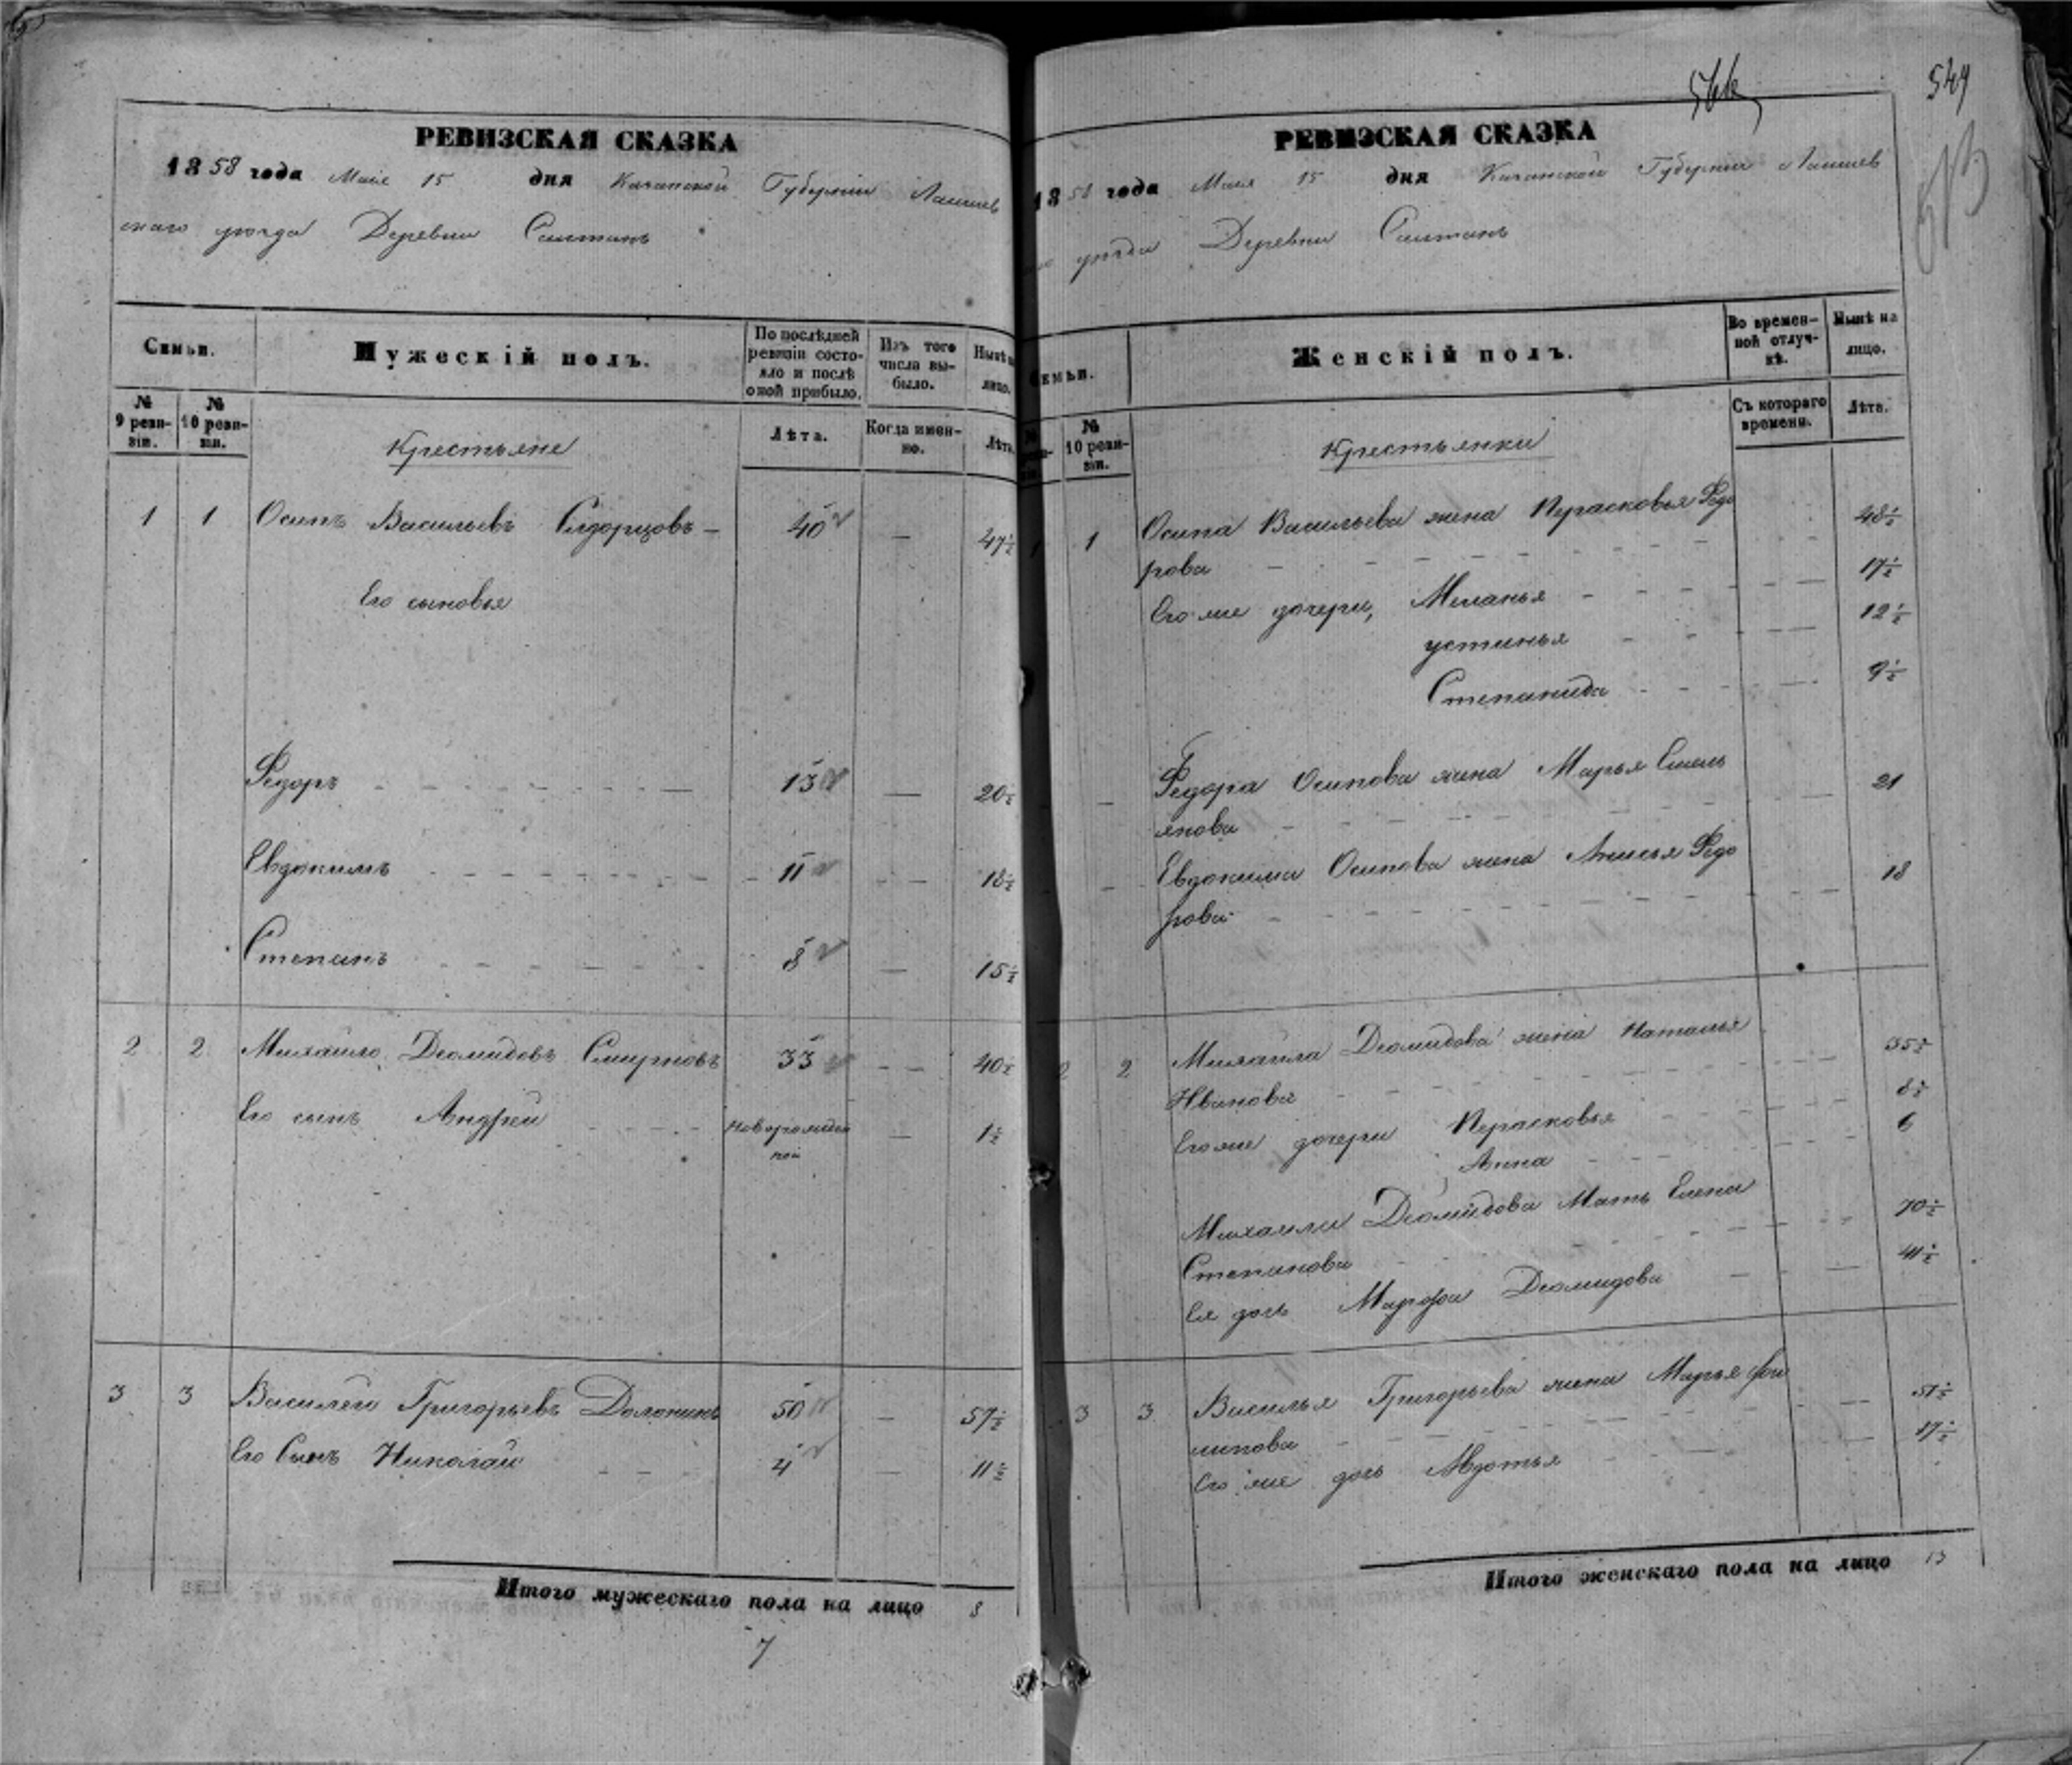 549
РЕВИЗСКАЯ СКАЗКА
1858 года Мая 15 дня Казанской Губернiи Лаишев
скаго уѣзда Деревни Салтанъ
Семьи.
Мужескiй полъ.
По послѣдней ревизiи состояло и послѣ оной прибыло.
Изъ того числа выбыло.
Нынѣ на лицо.
№ 9 ревизiи.
№ 10 ревизiи.
Крестьяне
Лѣта.
Когда именно.
Лѣта.
1 1 Осипъ Васильевъ Сидорцовъ — 40 — 47½
Его сыновья
Федоръ 13 — 20½
Евдокимъ 11 — 18½
Степанъ 8 — 15½
2 2 Михайло Деомидовъ Смирновъ 33 — 40½
Его сынъ Андрей новорожден — 1½
ной
3 3 Василей Григорьевъ Долонинъ 50 — 57½
Его Сынъ Николай 4 — 11½
Итого мужескаго пола на лицо 8
7
РЕВИЗСКАЯ СКАЗКА
1858 года Мая 15 дня Казанской Губернiи Лаишев
уѣзда Деревни Салтанъ
Семьи.
Женскiй полъ.
Во временной отлучкѣ.
Нынѣ на лицо.
№ 10 ревизiи.
Крестьянки
Съ котораго времени.
Лѣта.
1 1 Осипа Васильева жена Перасковья Федо
рова 48½
Его же дочери, Меланья 17½
Устинья 12½
Степанида 9½
Федора Осипова жена Марья Емель
янова 21
Евдокима Осипова жена Федо
рова 18
2 2 Михайла Деомидова жена Наталья
Иванова 35½
Его же дочери Перасковья 8½
Анна 6
Михайлы Деомидова Мать Елена
Степанова 70½
Ея дочь Марфа Деомидова 41½
3 3 Василья Григорьева жена Марья Фи
липова 51½
Его же дочь Авдотья 17½
Итого женскаго пола на лицо 13